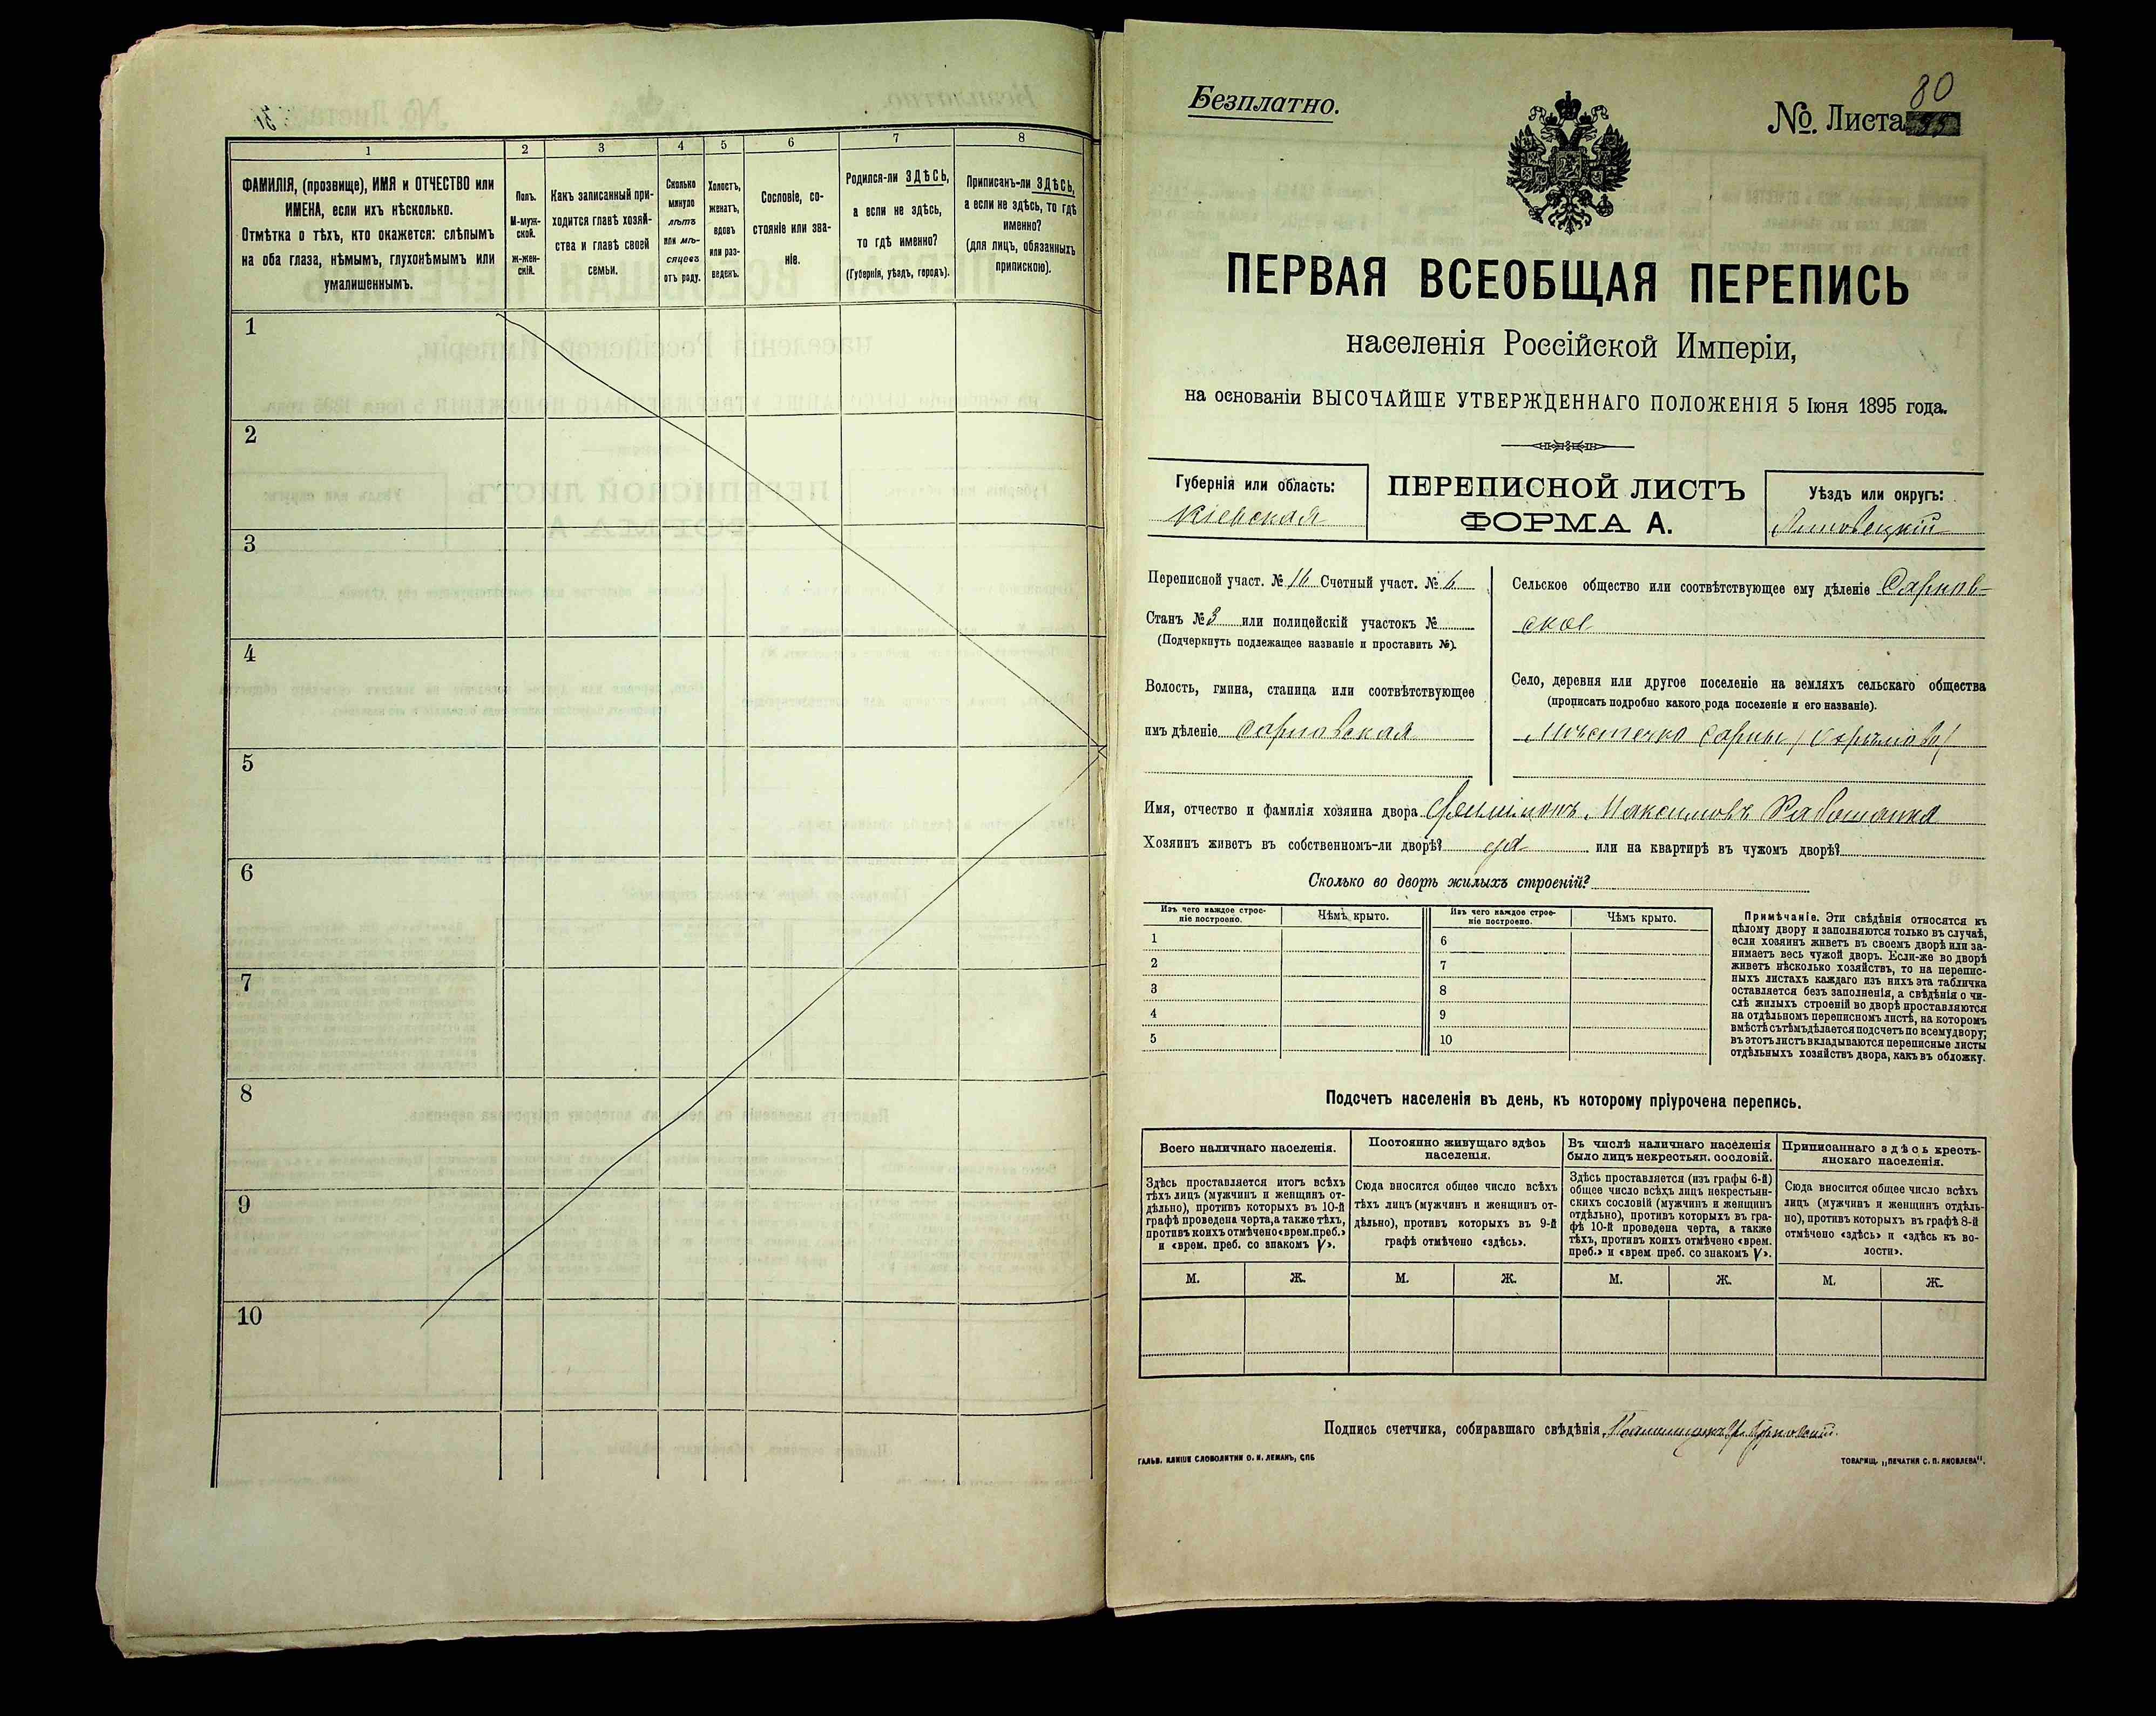 1
2
3
4
5
6
7
8
ФАМИЛІЯ, (прозвище), ИМЯ и ОТЧЕСТВО или
ИМЕНА, если ихъ нѣсколько.
Отмѣтка о тѣхъ, кто окажется: слѣпымъ
на оба глаза, нѣмымъ, глухонѣмымъ или
умалишеннымъ.
Полъ.
М-муж-
ской.
ж-жен-
скій.
Какъ записанный при-
ходится главѣ хозяй-
ства и главѣ своей
семьи.
Сколько
минуло
лѣтъ
или мѣ-
сяцевъ
отъ роду.
Холостъ,
женатъ,
вдовъ
или раз-
веденъ.
Сословіе, со-
стояніе или зва-
ніе.
Родился-ли ЗДѢСЬ,
а если не здѣсь,
то гдѣ именно?
(Губернія, уѣздъ, городъ).
Приписанъ-ли ЗДѢСЬ,
а если не здѣсь, то гдѣ
именно?
(для лицъ, обязанныхъ
припискою).
1
2
3
4
5
6
7
8
9
10
Безплатно.
80
№. Листа
ПЕРВАЯ ВСЕОБЩАЯ ПЕРЕПИСЬ
населенія Россійской Имперіи,
на основаніи ВЫСОЧАЙШЕ УТВЕРЖДЕННАГО ПОЛОЖЕНІЯ 5 Іюня 1895 года.
Губернія или область:
Кіевская
ПЕРЕПИСНОЙ ЛИСТЪ
ФОРМА А.
Уѣздъ или округъ:
Липовецкій
Переписной участ. № 16 Счетный участ. № 6
Станъ № 3 или полицейскій участокъ №
(Подчеркнуть подлежащее названіе и проставить №).
Волость, гмина, станица или соотвѣтствующее
имъ дѣленіе Сарновская
Сельское общество или соотвѣтствующее ему дѣленіе Сарнов-
ское
Село, деревня или другое поселеніе на земляхъ сельскаго общества
(прописать подробно какого рода поселеніе и его названіе).
Мѣстечко Сарны
Имя, отчество и фамилія хозяина двора Филимонъ Максимовъ
Хозяинъ живетъ въ собственномъ-ли дворѣ? да или на квартирѣ въ чужомъ дворѣ?
Сколько во дворѣ жилыхъ строеній?
Изъ чего каждое строе-
ніе построено.
Чѣмъ крыто.
Изъ чего каждое строе-
ніе построено.
Чѣмъ крыто.
1
2
3
4
5
6
7
8
9
10
Примѣчаніе. Эти свѣдѣнія относятся къ
цѣлому двору и заполняются только въ случаѣ,
если хозяинъ живетъ въ своемъ дворѣ или за-
нимаетъ весь чужой дворъ. Если-же во дворѣ
живетъ нѣсколько хозяйствъ, то на перепис-
ныхъ листахъ каждаго изъ нихъ эта табличка
оставляется безъ заполненія, а свѣдѣнія о чи-
слѣ жилыхъ строеній во дворѣ проставляются
на отдѣльномъ переписномъ листѣ, на которомъ
вмѣстѣ съ тѣмъ дѣлается подсчетъ по всему двору;
въ этотъ листъ вкладываются переписные листы
отдѣльныхъ хозяйствъ двора, какъ въ обложку.
Подсчетъ населенія въ день, къ которому пріурочена перепись.
Всего наличнаго населенія.
Здѣсь проставляется итогъ всѣхъ
тѣхъ лицъ (мужчинъ и женщинъ от-
дѣльно), противъ которыхъ въ 10-й
графѣ проведена черта, а также тѣхъ,
противъ коихъ отмѣчено «врем. преб.»
и «врем. преб. со знакомъ V».
Постоянно живущаго здѣсь
населенія.
Сюда вносится общее число всѣхъ
тѣхъ лицъ (мужчинъ и женщинъ от-
дѣльно), противъ которыхъ въ 9-й
графѣ отмѣчено «здѣсь».
Въ числѣ наличнаго населенія
было лицъ некрестьян. сословій.
Здѣсь проставляется (изъ графы 6-й)
общее число всѣхъ лицъ некрестьян-
скихъ сословій (мужчинъ и женщинъ
отдѣльно), противъ которыхъ въ гра-
фѣ 10-й проведена черта, а также
тѣхъ, противъ коихъ отмѣчено «врем.
преб.» и «врем преб. со знакомъ V».
Приписаннаго здѣсь кресть-
янскаго населенія.
Сюда вносится общее число всѣхъ
лицъ (мужчинъ и женщинъ отдѣль-
но), противъ которыхъ въ графѣ 8-й
отмѣчено «здѣсь» и «здѣсь къ во-
лости».
М.
Ж.
М.
Ж.
М.
Ж.
М.
Ж.
Подпись счетчика, собиравшаго свѣдѣнія
ГАЛЬВ. КЛИШЕ СЛОВОЛИТНИ О. И. ЛЕМАНЪ, СПБ
ТОВАРИЩ. „ПЕЧАТНЯ С. П. ЯКОВЛЕВА".